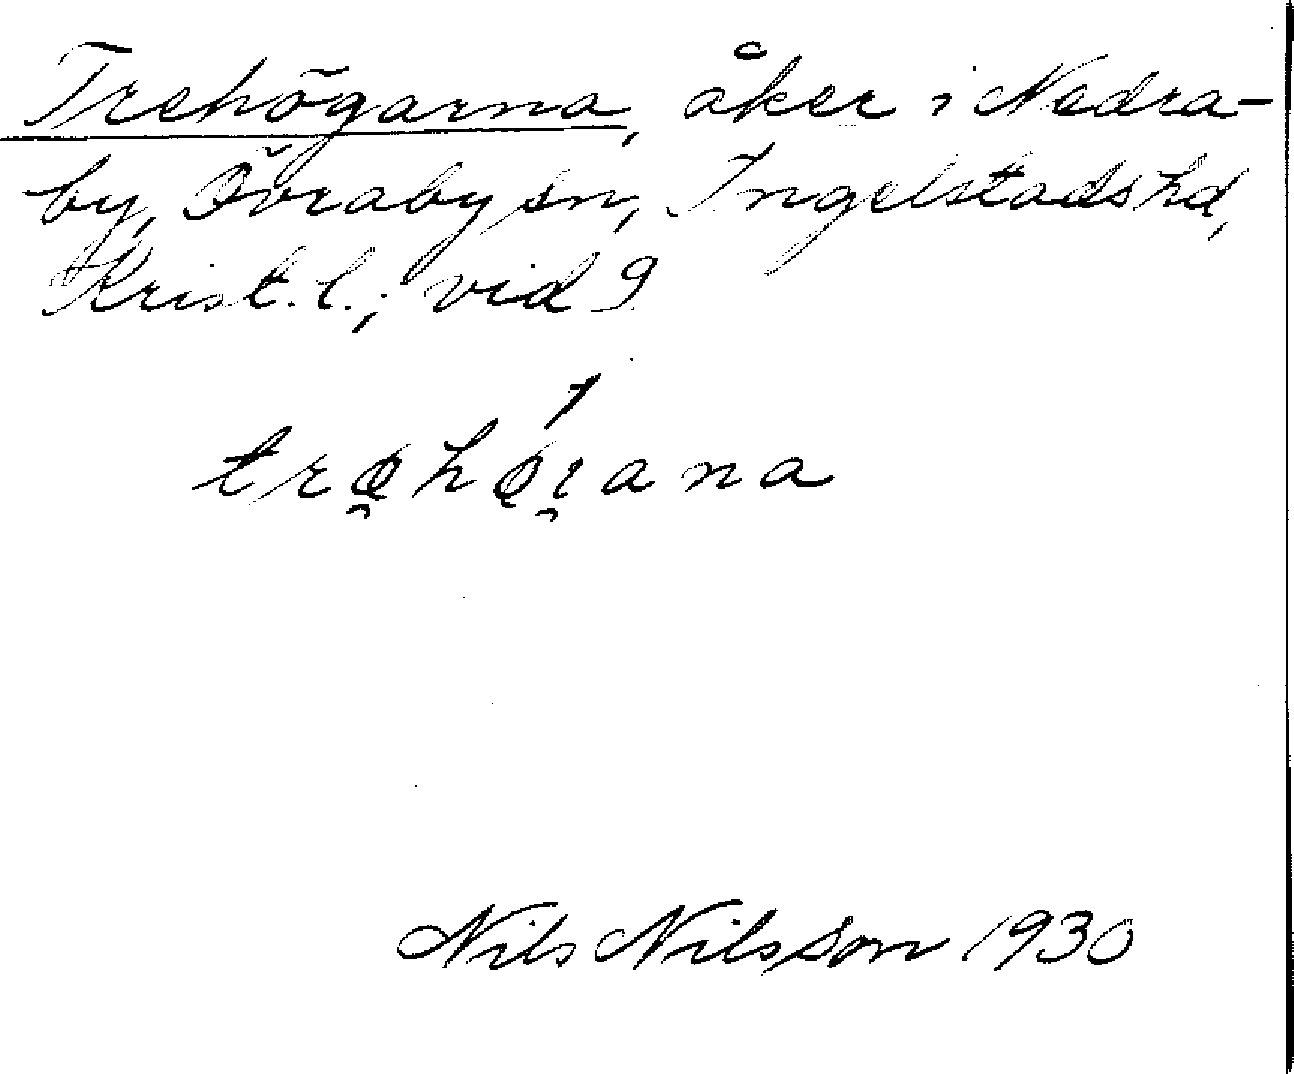 Trehögarna, åker i Nedra-
by, Övraby sn, Ingelstads hd,
Krist. l.; vid 9
trø̯hǿi̯ana
Nils Nilsson 1930